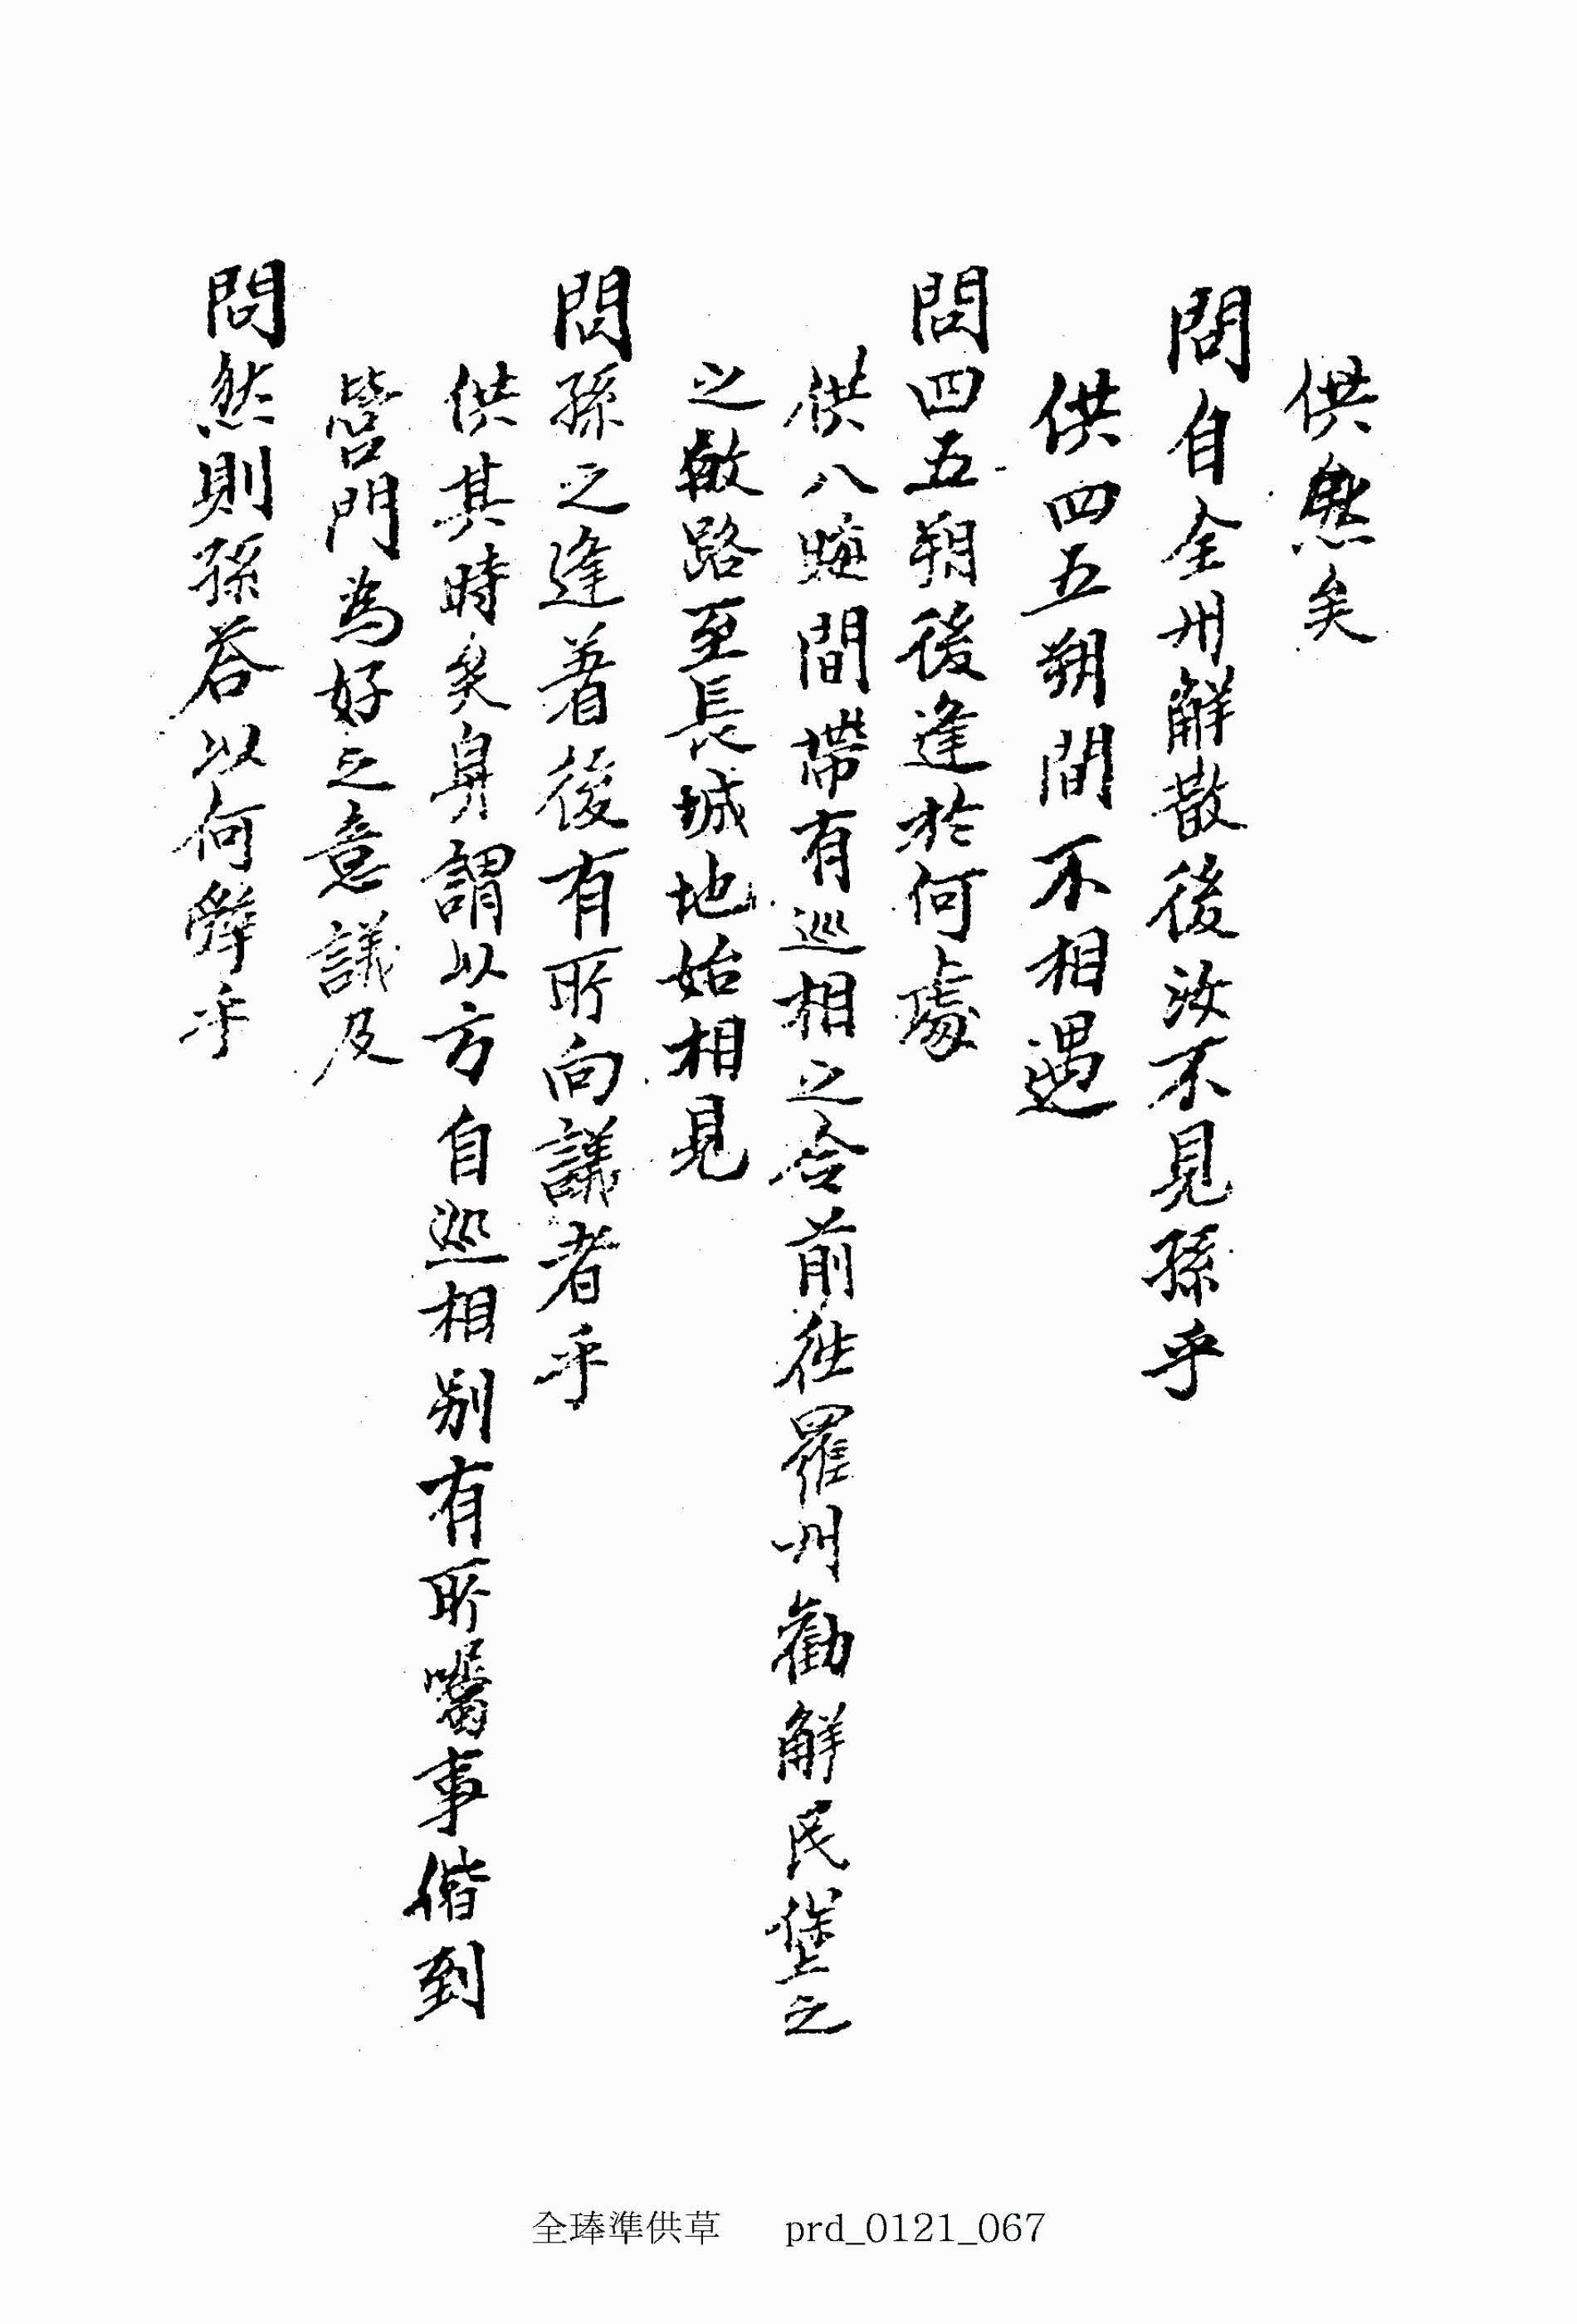 供然矣
問自全州解散後汝不見孫乎
供四五朔間不相遇
問四五朔後逢於何處
供八晦間帶有巡相之令前徃羅州勸解民堡之
之敀路至長城地始相見
問孫之逢著後有所向議者乎
供其時矣身謂以方自巡相別有所囑事偕到
營門為好之意議及
問然則孫答以何辞乎
全琫準供草 prd_0121_067